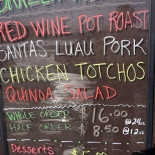 RED WINE POT ROAST
SANTAS LUAU PORK
CHICKEN TOTCHOS
QUINOA SALAD
WHOLE ORDER $16.00 @24oz
HALF ORDER $8.50 @12oz
Desserts